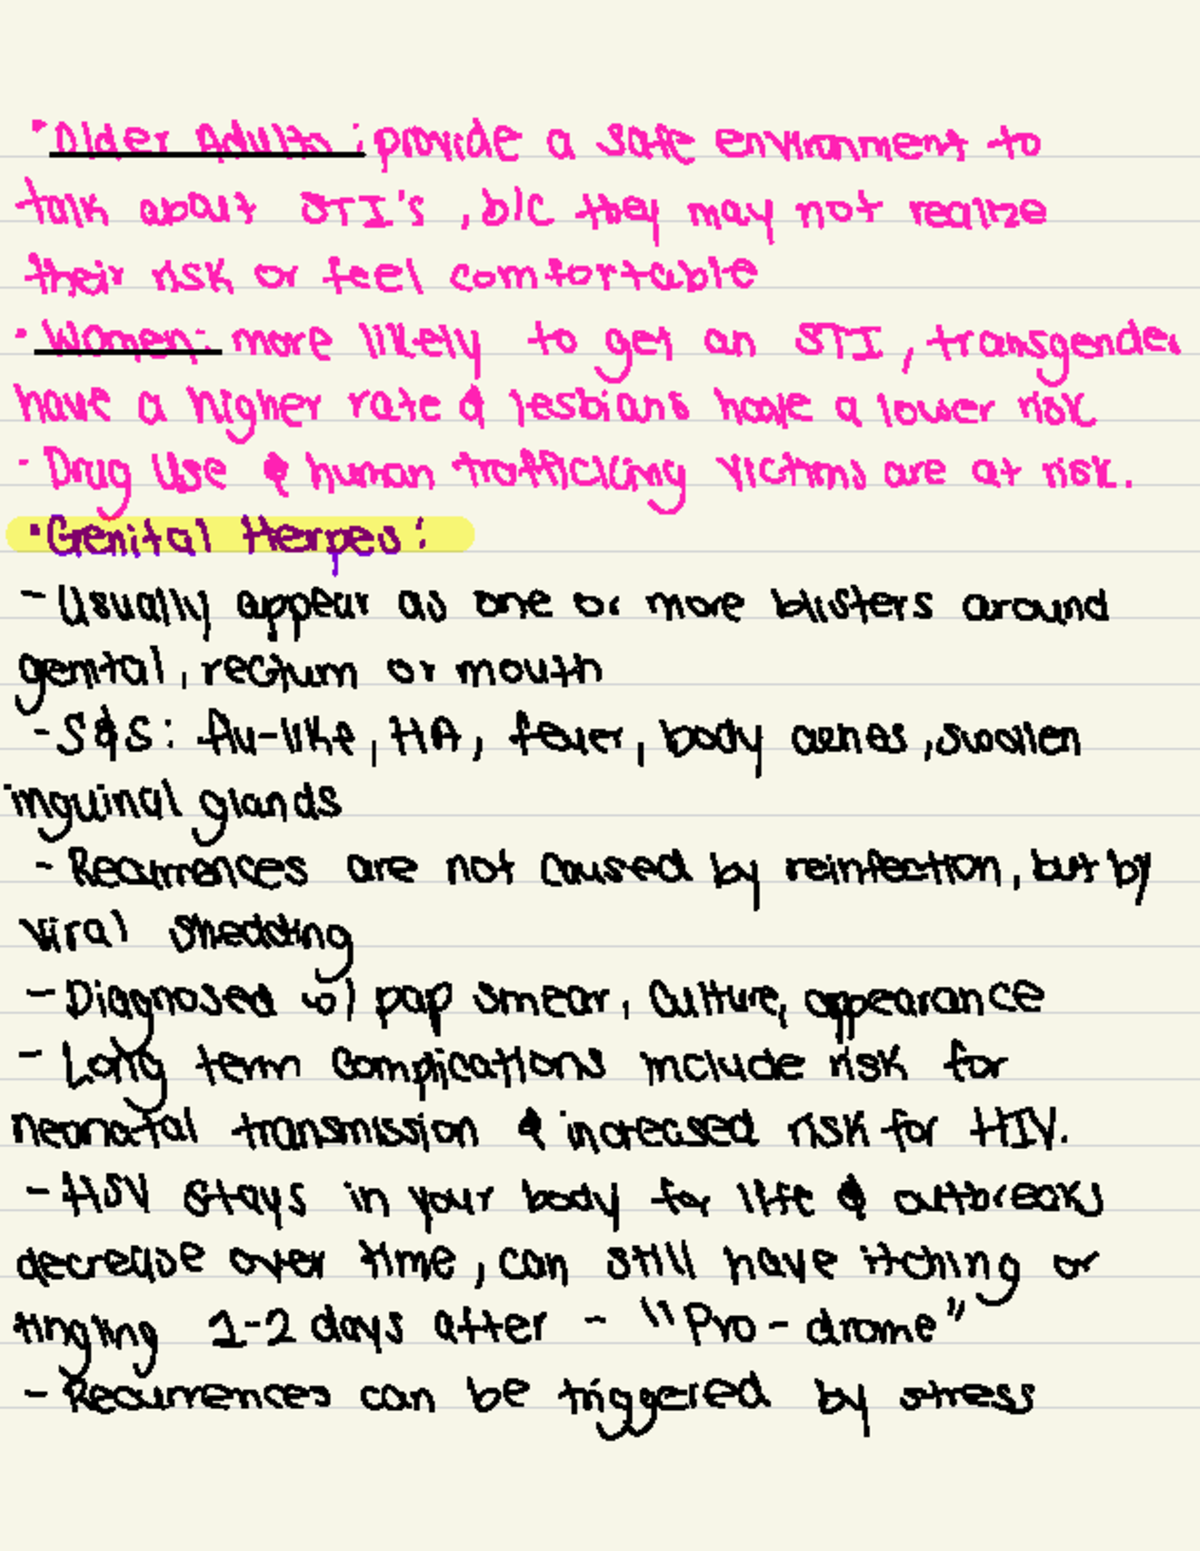 • Older Adults : provide a safe environment to
talk about STI's , b/c they may not realize
their risk or feel comfortable
• Women: more likely to get an STI, transgender
have a higher rate & lesbians have a lower risk
- Drug Use & human trafficking victims are at risk.
• Genital Herpes:
- Usually appear as one or more blisters around
genital, rectum or mouth
- S&S: flu-like, HA, fever, body aches, swollen
inguinal glands
- Recurrences are not caused by reinfection, but by
viral shedding
- Diagnosed w/ pap smear, culture, appearance
- Long term complications include risk for
neonatal transmission & increased risk for HIV.
- HSV stays in your body for life & outbreaks
decrease over time, can still have itching or
tingling 1-2 days after - "Pro-drome"
- Recurrences can be triggered by stress